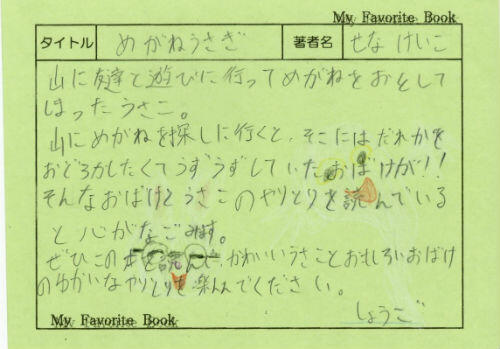 My Favorite Book
タイトル めがねうさぎ 著者名 せなけいこ
山に友達と遊びに行ってめがねをおとして
しまったうさこ。
山にめがねを探しに行くと、そこにはだれかを
おどろかしたくてうずうずしていたおばけが!!
そんなおばけとうさこのやりとりを読んでいる
と心がなごみます。
ぜひこの本を読んで、かわいいうさことおもしろいおばけ
のゆかいなやりとりを楽しんでください。
しょうご
My Favorite Book